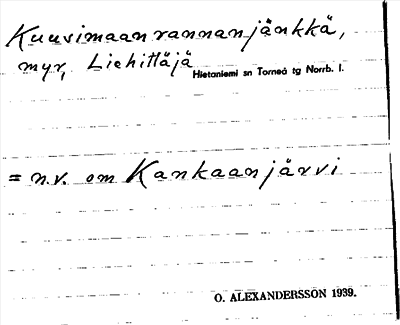 Kuusimaanrannanjänkkä,
myr, Liehittäjä Hietaniemi sn Torneå tg Norrb. l.
= n.v. om Kankaanjärvi
O. ALEXANDERSSON 1939.